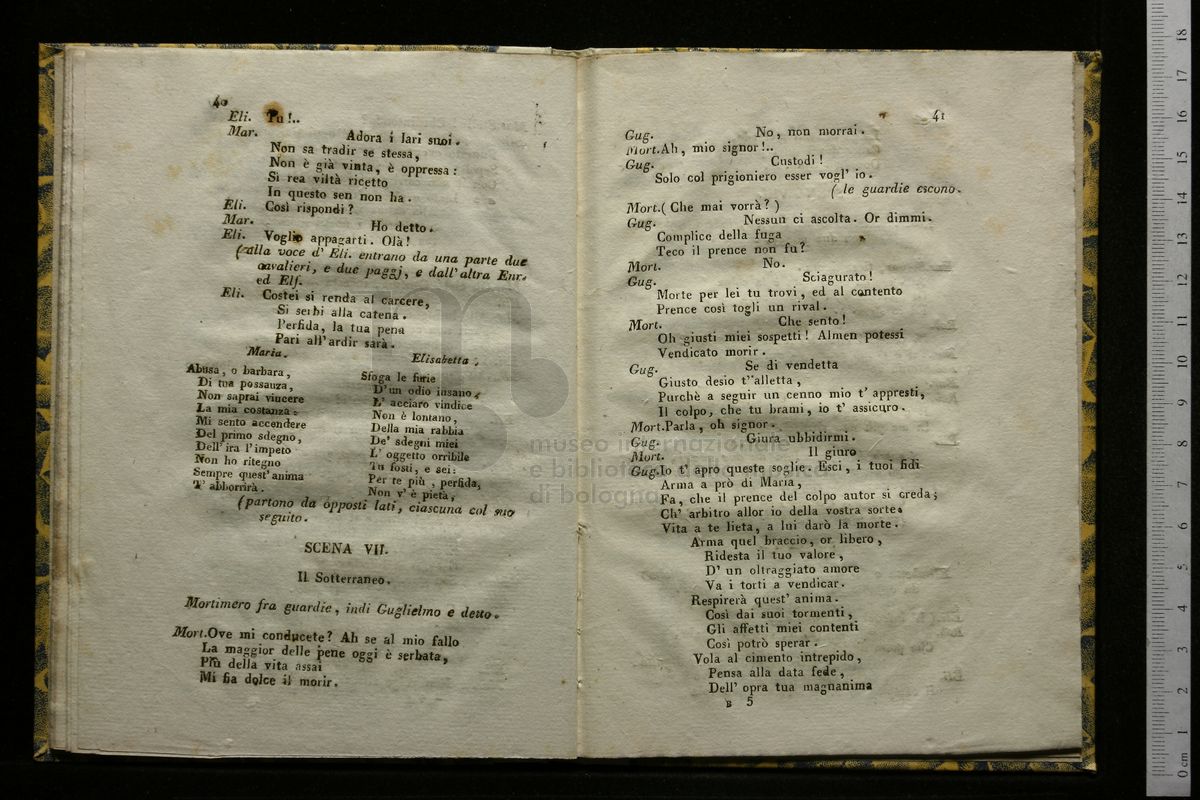 40
Eli. Tu!..
Mar. Adora i lari suoi.
Non sa tradir se stessa,
Non è già vinta, è oppressa:
Sì rea viltà ricetto
In questo sen non ha.
Eli. Così rispondi?
Mar. Ho detto.
Eli. Voglio appagarti. Olà!
(alla voce d' Eli. entrano da una parte due
cavalieri, e due paggj, e dall'altra Enr.
ed Elf.
Eli. Costei si renda al carcere,
Si serbi alla catena.
Perfida, la tua pena
Pari all'ardir sarà.
Maria.
Abusa, o barbara,
Di tua possanza,
Non saprai vincere
La mia costanza:
Mi sento accendere
Del primo sdegno,
Dell'ira l'impeto
Non ho ritegno
Sempre quest'anima
T' abborrirà.
Elisabetta.
Sfoga le furie
D'un odio insano,
L' acciaro vindice
Non è lontano,
Della mia rabbia
De' sdegni miei
L' oggetto orribile
Tu fosti, e sei:
Per te più, perfida,
Non v' è pietà,
(partono da opposti lati, ciascuna col suo
seguito.
SCENA VII.
Il Sotterraneo.
Mortimero fra guardie, indi Guglielmo e detto.
Mort. Ove mi conducete? Ah se al mio fallo
La maggior delle pene oggi è serbata,
Più della vita assai
Mi fia dolce il morir.
41
Gug. No, non morrai.
Mort. Ah, mio signor!..
Gug. Custodi!
Solo col prigioniero esser vogl' io.
(le guardie escono.
Mort. (Che mai vorrà?)
Gug. Nessun ci ascolta. Or dimmi.
Complice della fuga
Teco il prence non fu?
Mort. No.
Gug. Sciagurato!
Morte per lei tu trovi, ed al contento
Prence così togli un rival.
Mort. Che sento!
Oh giusti miei sospetti! Almen potessi
Vendicato morir.
Gug. Se di vendetta
Giusto desio t' alletta,
Purchè a seguir un cenno mio t' appresti,
Il colpo, che tu brami, io t' assicuro.
Mort. Parla, oh signor.
Gug. Giura ubbidirmi.
Mort. Il giuro
Gug. Io t' apro queste soglie. Esci, i tuoi fidi
Arma a prò di Maria,
Fa, che il prence del colpo autor si creda;
Ch' arbitro allor io della vostra sorte
Vita a te lieta, a lui darò la morte.
Arma quel braccio, or libero,
Ridesta il tuo valore,
D' un oltraggiato amore
Va i torti a vendicar.
Respirerà quest' anima.
Così dai suoi tormenti,
Gli affetti miei contenti
Così potrò sperar.
Vola al cimento intrepido,
Pensa alla data fede,
Dell' opra tua magnanima
B 5
museo internazionale
e biblioteca
di bologna
0 cm 1 2 3 4 5 6 7 8 9 10 11 12 13 14 15 16 17 18